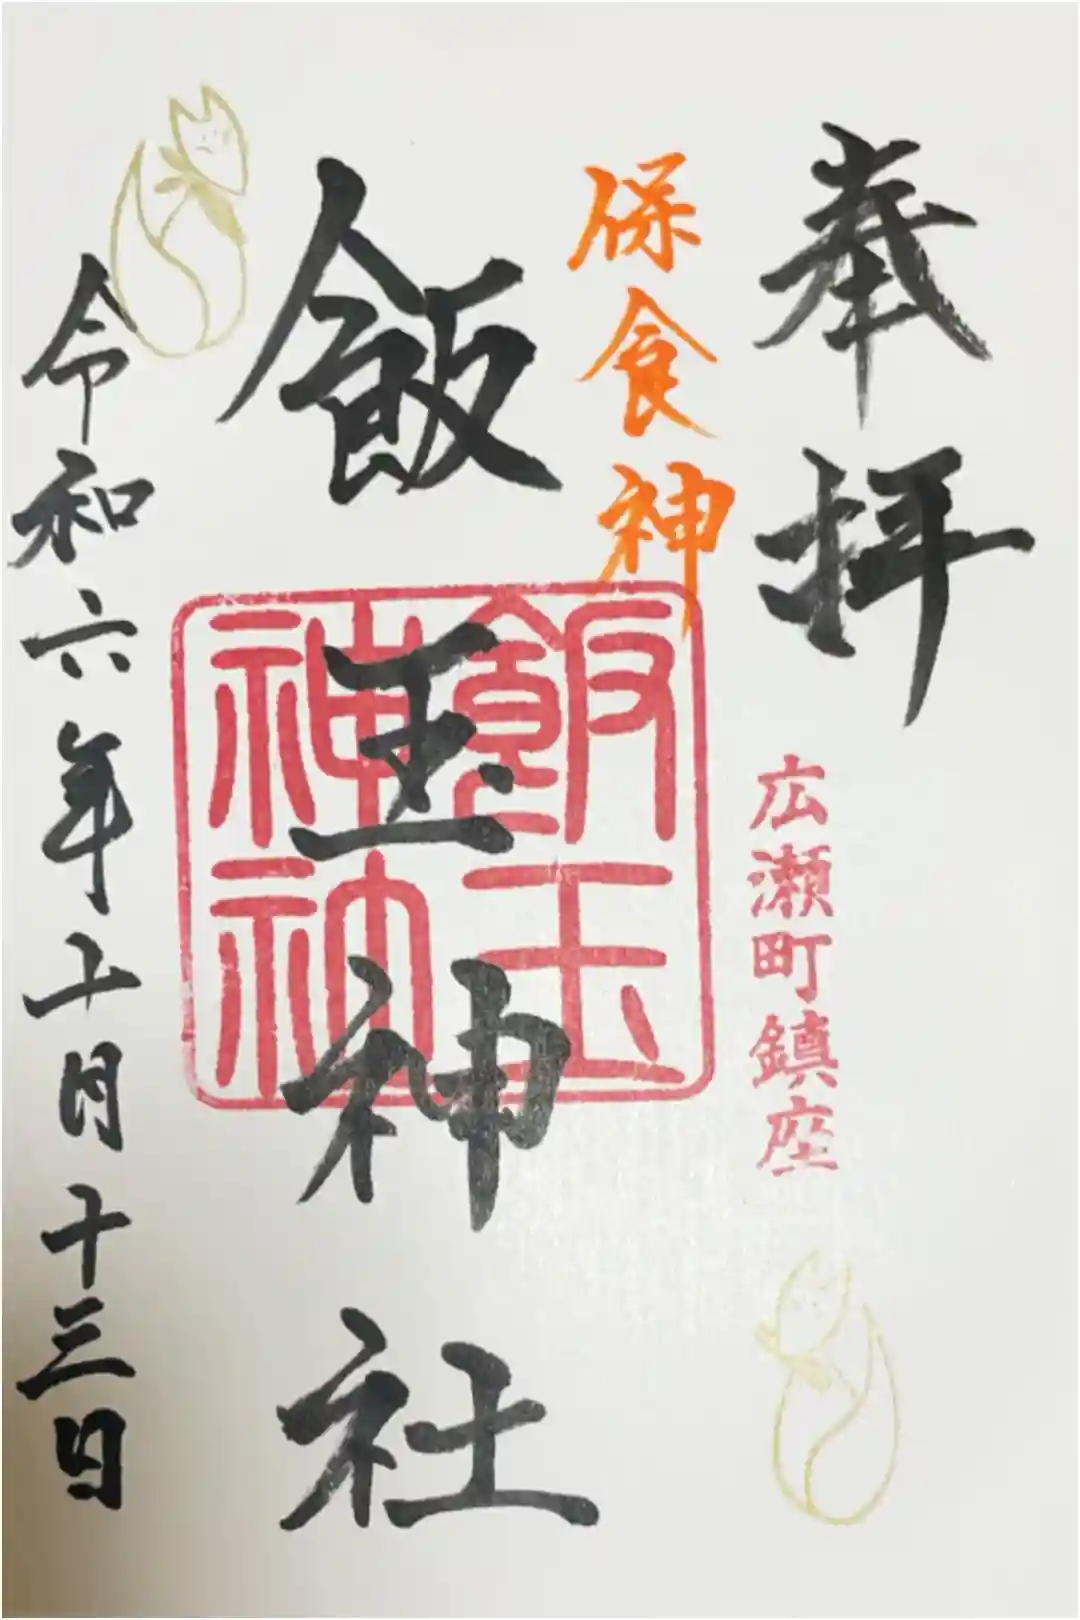 奉拝
広瀬町鎮座
保食神
飯玉神社
飯玉
神社
令和六年十月十三日